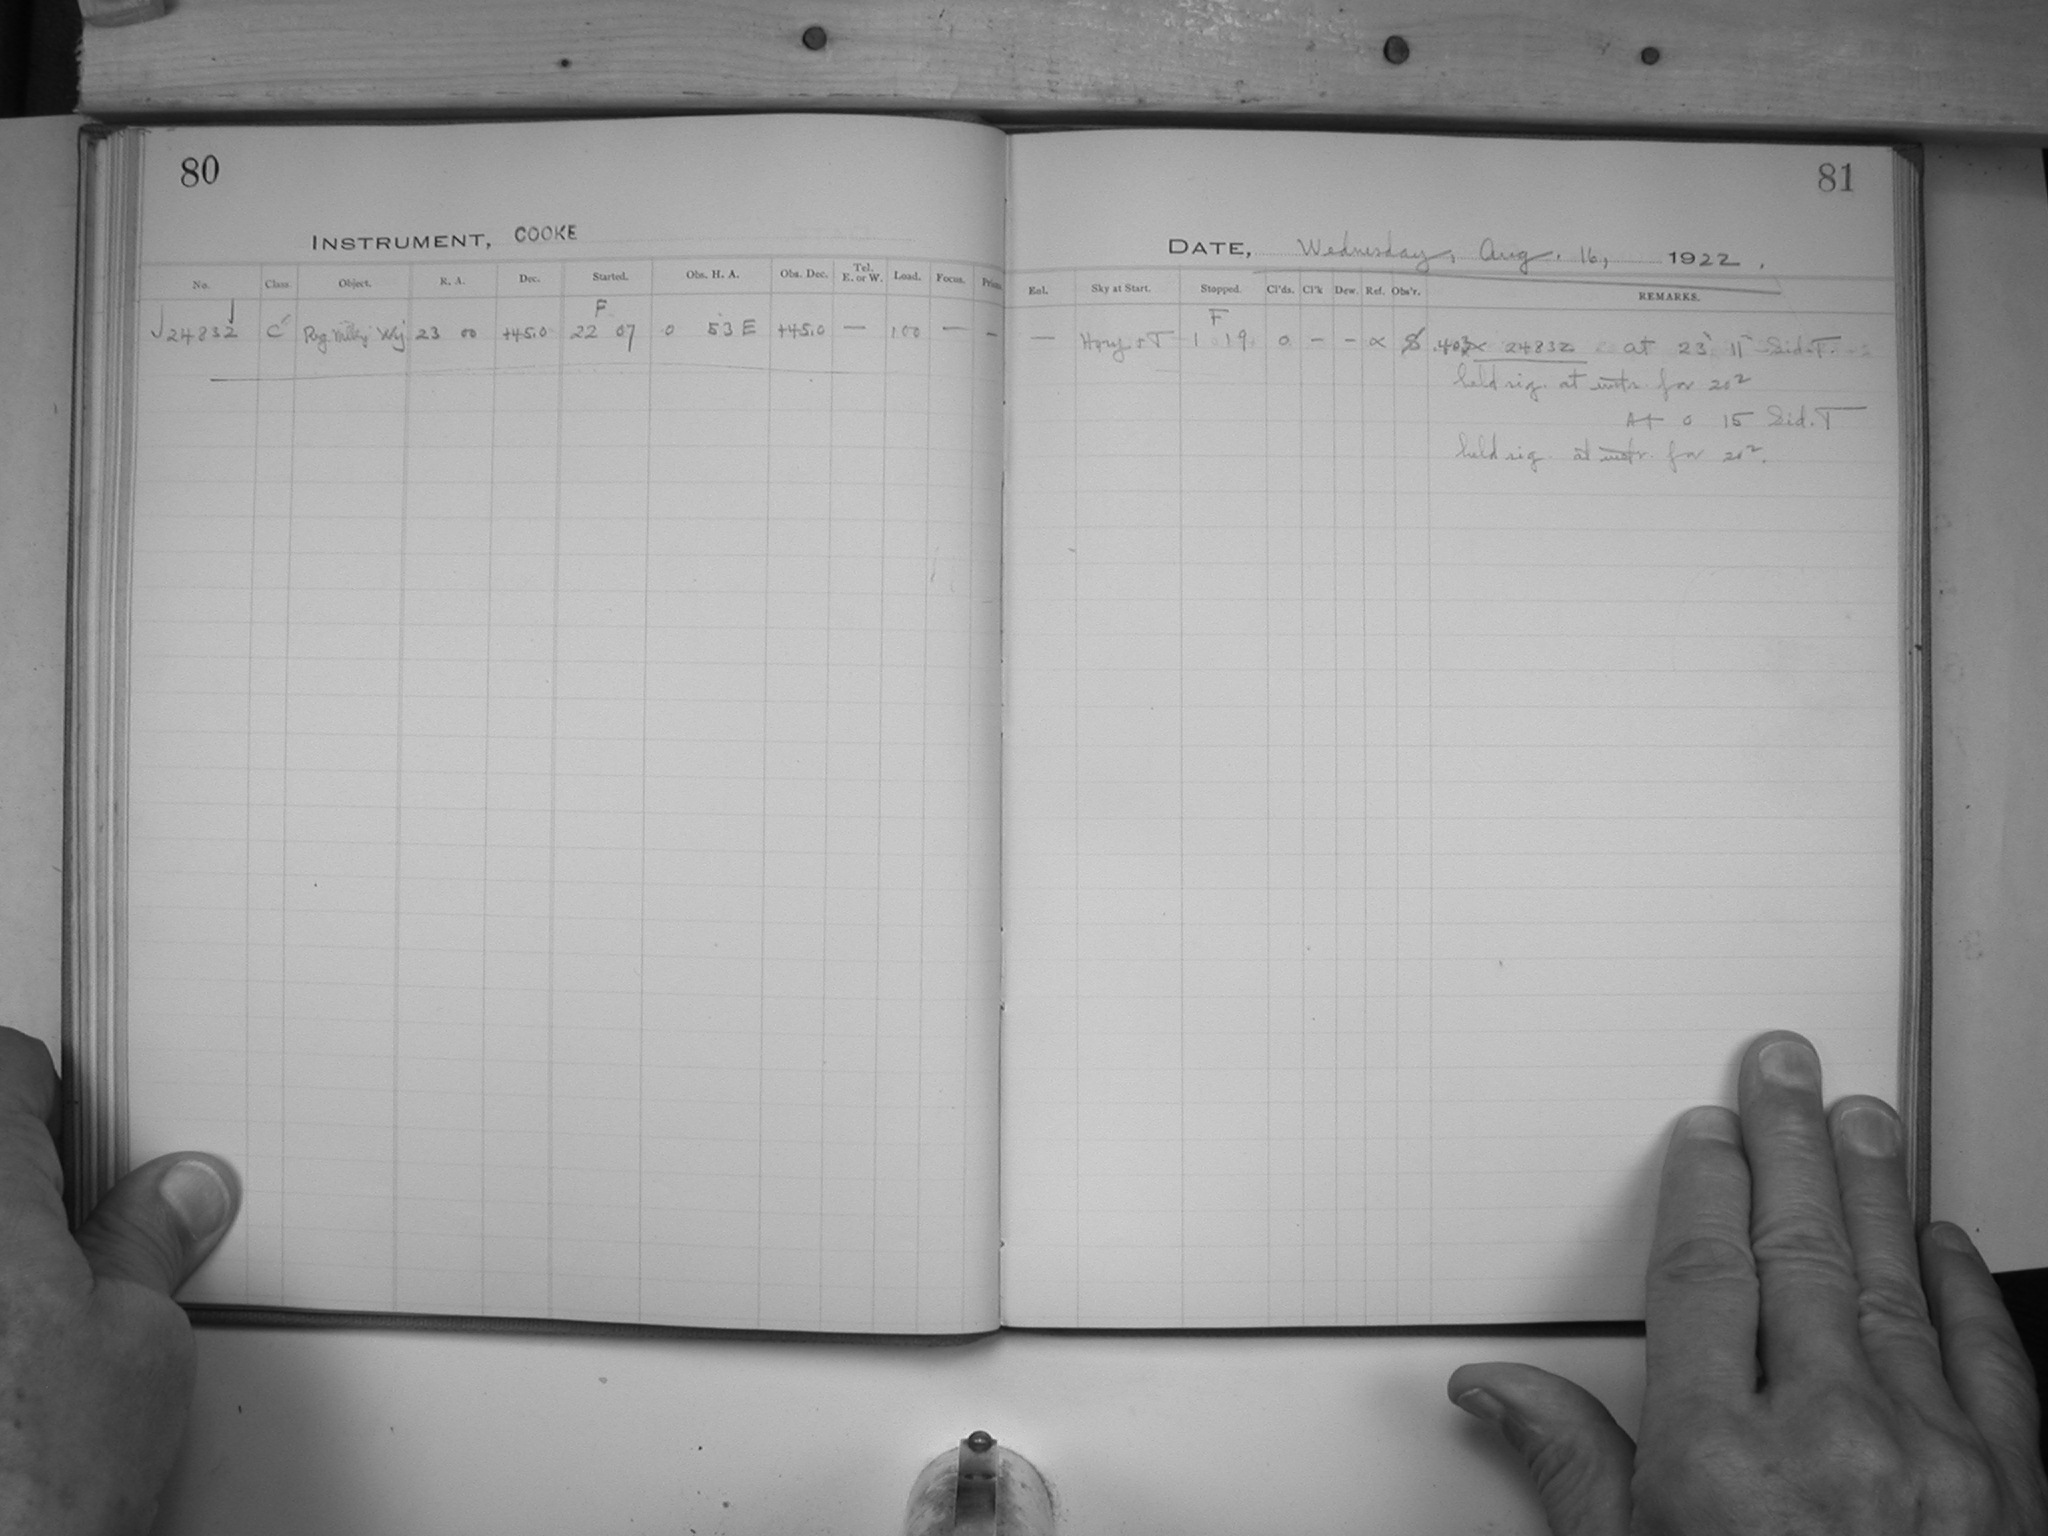 80
INSTRUMENT, COOKE
No. Class Object. R. A. Dec. Started. Obs. H. A. Obs. Dec. Tel. E. or W. Load. Focus. Prism
F
24832 C Reg. Milky Wy 23 00 +45.0 22 07 0 53 E +45.0 — 100 — —
81
DATE, Wednesday, Aug. 16, 1922.
Enl. Sky at Start. Stopped. Cl'ds. Cl'k Dew. Ref. Obs'r. REMARKS.
F
— + T 1 19 0 - - α 24832 at 23 11 Sid. T.
held sig. at instr. for 20
At 0 15 Sid. T
held sig. at instr. for 20